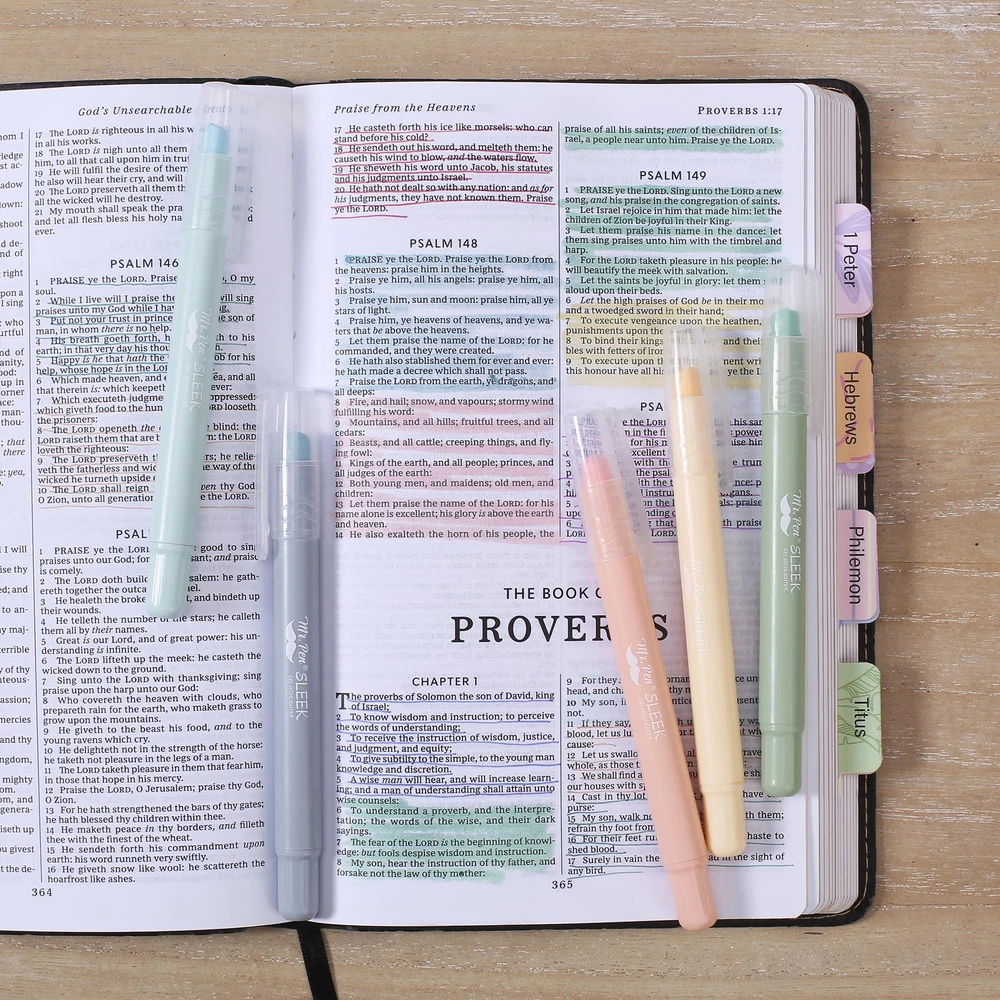 God's Unsearchable
17 The LORD is righteous in all his w
in all his works.
18 The LORD is nigh unto all them
him, to all that call upon him in trut
19 He will fulfil the desire of them
he also will hear their cry, and will
20 The LORD preserveth all them th
all the wicked will he destroy.
21 My mouth shall speak the pra
and let all flesh bless his holy na
ever.
PSALM 146
1 PRAISE ye the LORD. Praise O my
soul.
2 While I live will I praise the will sing
praises unto my God while I hav
3 Put not your trust in prince son of
man, in whom there is no help.
4 His breath goeth forth, h
earth; in that very day his thou
5 Happy is he that hath the ob for his
help, whose hope is in the LORD
6 Which made heaven, and e ea, and all
that therein is: which keepeth
7 Which executeth judgme ppressed:
which giveth food to the hun LORD looseth
the prisoners:
8 The LORD openeth the blind: the
LORD raiseth them that are b n: the LORD
loveth the righteous:
9 The LORD preserveth he relie-
veth the fatherless and wid the way of the
wicked he turneth upside
10 The LORD shall reign even thy God
O Zion, unto all generation e the LORD.
PSAL
1 PRAISE ye the LORD: good to sing
praises unto our God; for sant; and praise
is comely.
2 The LORD doth build salem: he gath-
ereth together the outca ael.
3 He healeth the broke t, and bindeth up
their wounds.
4 He telleth the number of the stars; he calleth
them all by their names.
5 Great is our Lord, and of great power: his un-
derstanding is infinite.
6 The LORD lifteth up the meek: he casteth the
wicked down to the ground.
7 Sing unto the LORD with thanksgiving; sing
praise upon the harp unto our God:
8 Who covereth the heaven with clouds, who
prepareth rain for the earth, who maketh grass to
grow upon the mountains.
9 He giveth to the beast his food, and to the
young ravens which cry.
10 He delighteth not in the strength of the horse:
he taketh not pleasure in the legs of a man.
11 The LORD taketh pleasure in them that fear him,
in those that hope in his mercy.
12 Praise the LORD, O Jerusalem; praise thy God,
O Zion.
13 For he hath strengthened the bars of thy gates;
he hath blessed thy children within thee.
14 He maketh peace in thy borders, and filleth
thee with the finest of the wheat.
15 He sendeth forth his commandment upon
earth: his word runneth very swiftly.
16 He giveth snow like wool: he scattereth the
hoarfrost like ashes.
364
Praise from the Heavens
PROVERBS 1:17
17 He casteth forth his ice like morsels: who can
stand before his cold?
18 He sendeth out his word, and melteth them: he
causeth his wind to blow, and the waters flow.
19 He sheweth his word unto Jacob, his statutes
and his judgments unto Israel.
20 He hath not dealt so with any nation: and as for
his judgments, they have not known them. Praise
ye the LORD.
PSALM 148
1 PRAISE ye the LORD. Praise ye the LORD from
the heavens: praise him in the heights.
2 Praise ye him, all his angels: praise ye him, all
his hosts.
3 Praise ye him, sun and moon: praise him, all ye
stars of light.
4 Praise him, ye heavens of heavens, and ye wa-
ters that be above the heavens.
5 Let them praise the name of the LORD: for he
commanded, and they were created.
6 He hath also stablished them for ever and ever:
he hath made a decree which shall not pass.
7 Praise the LORD from the earth, ye dragons, and
all deeps:
8 Fire, and hail; snow, and vapours; stormy wind
fulfilling his word:
9 Mountains, and all hills; fruitful trees, and all
cedars:
10 Beasts, and all cattle; creeping things, and fly-
ing fowl:
11 Kings of the earth, and all people; princes, and
all judges of the earth:
12 Both young men, and maidens; old men, and
children:
13 Let them praise the name of the LORD: for his
name alone is excellent; his glory is above the earth
and heaven.
14 He also exalteth the horn of his people, the
praise of all his saints; even of the children of Is-
rael, a people near unto him. Praise ye the LORD.
PSALM 149
1 PRAISE ye the LORD. Sing unto the LORD a new
song, and his praise in the congregation of saints.
2 Let Israel rejoice in him that made him: let the
children of Zion be joyful in their King.
3 Let them praise his name in the dance: let
them sing praises unto him with the timbrel and
harp.
4 For the LORD taketh pleasure in his people: he
will beautify the meek with salvation.
5 Let the saints be joyful in glory: let them
aloud upon their beds.
6 Let the high praises of God be in their mo
and a twoedged sword in their hand;
7 To execute vengeance upon the heathen,
punishments upon the
8 To bind their kings
bles with fetters of iron
9 To execute upon
this honour have all
PSA
THE BOOK O
PROVER S
CHAPTER 1
The proverbs of Solomon the son of David, king
of Israel;
2 To know wisdom and instruction; to perceive
the words of understanding;
3 To receive the instruction of wisdom, justice,
and judgment, and equity;
4 To give subtilty to the simple, to the young man
knowledge and discretion.
5 A wise man will hear, and will increase learn-
ing; and a man of understanding shall attain unto
wise counsels:
6 To understand a proverb, and the interpre-
tation; the words of the wise, and their dark
sayings.
7 The fear of the LORD is the beginning of knowl-
edge: but fools despise wisdom and instruction.
8 My son, hear the instruction of thy father, and
forsake not the law of thy mother:
9 For they
head, and cha
10 My son,
not.
11 If they say,
blood, let us lu
cause:
12 Let us swallo
whole, as those t
13 We shall find a
our houses with s
14 Cast in thy lot
purse:
15 My son, walk n
refrain thy foot from
16 For their feet ru haste to
shed blood.
17 Surely in vain the in the sight of
any bird.
365
1 Peter
Hebrews
Philemon
Titus
Mr. Pen SLEEK
Mr. Pen SLEEK
GEL HIGHLIGHTER
Mr. Pen SLEEK
Mr. Pen SLEEK
Mr. Pen SLEEK
GEL HIGHLIGHTER